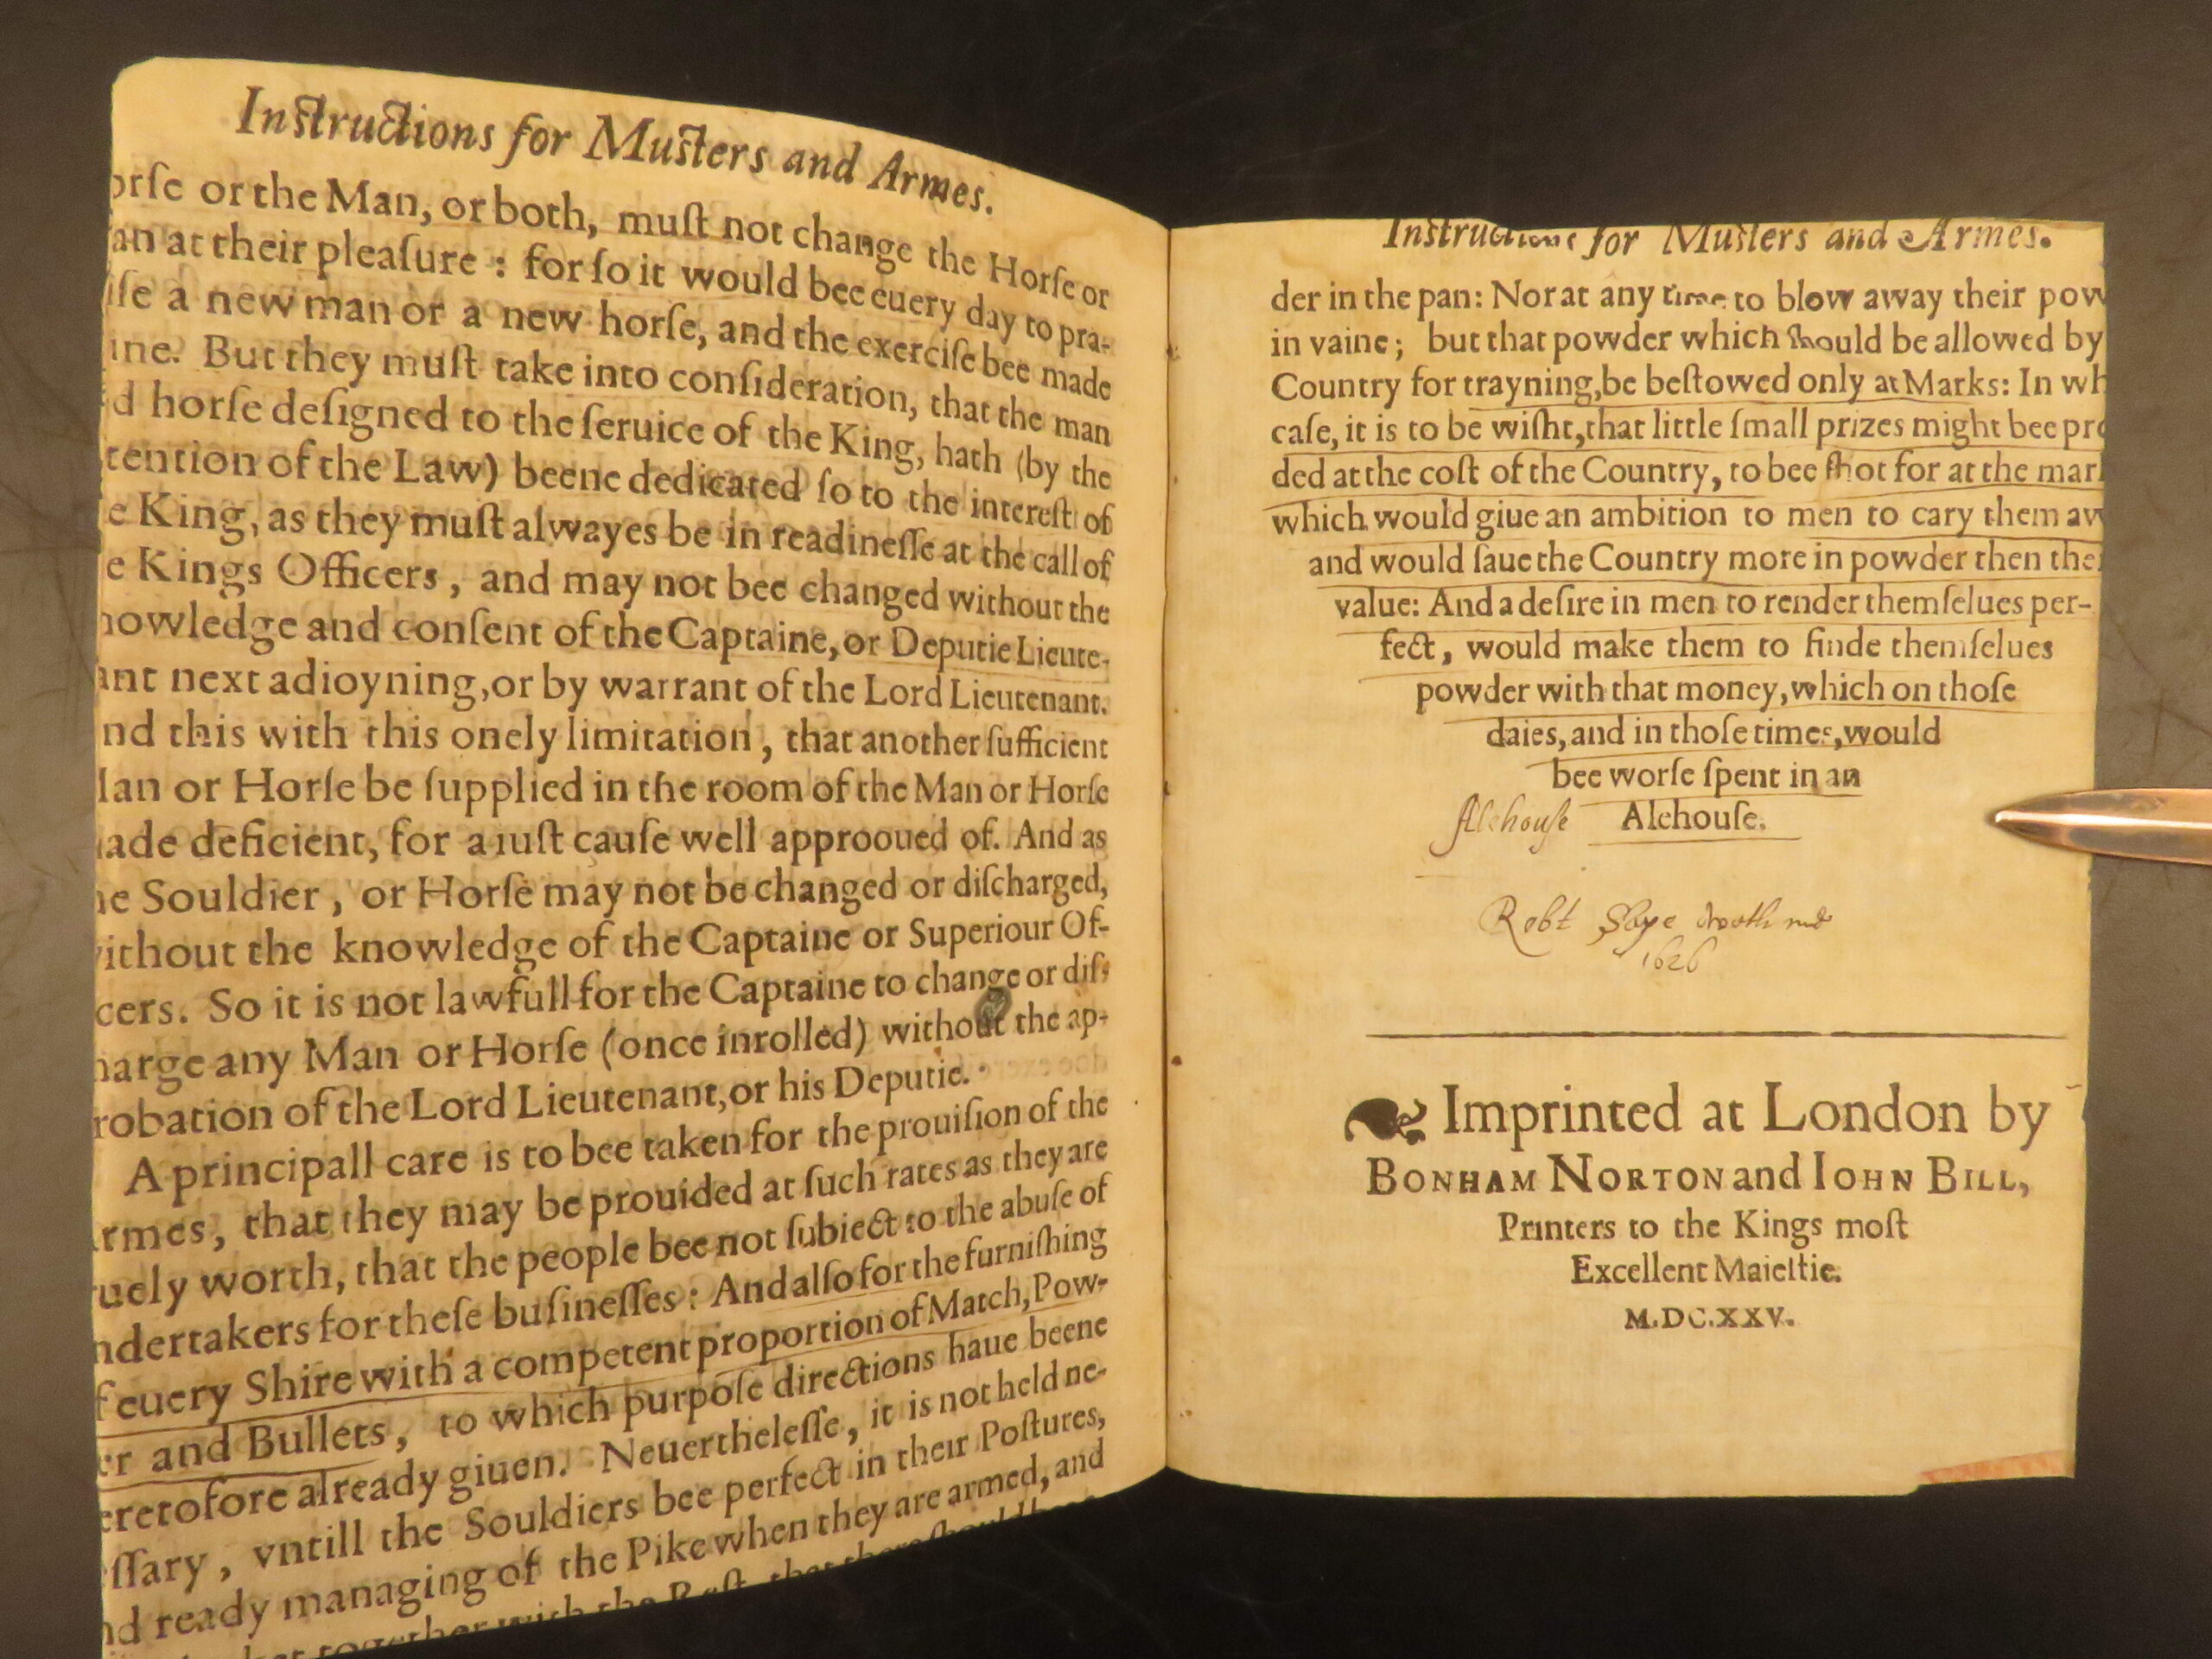 Instructions for Musters and Armes.
orſe or the Man, or both, muſt not change the Horſe or
an at their pleaſure : for ſo it would bee euery day to pra-
iſe a new man or a new horſe, and the exerciſe bee made
ine. But they muſt take into conſideration, that the man
d horſe deſigned to the ſeruice of the King, hath (by the
tention of the Law) beene dedicated ſo to the intereſt of
e King, as they muſt alwayes be in readineſſe at the call of
e Kings Officers, and may not bee changed without the
nowledge and conſent of the Captaine, or Deputie Lieute-
ant next adioyning, or by warrant of the Lord Lieutenant.
nd this with this onely limitation, that another ſufficient
lan or Horſe be ſupplied in the room of the Man or Horſe
ade deficient, for a iuſt cauſe well approoued of. And as
he Souldier, or Horſe may not be changed or diſcharged,
vithout the knowledge of the Captaine or Superiour Of-
cers. So it is not lawfull for the Captaine to change or diſ-
harge any Man or Horſe (once inrolled) without the ap-
robation of the Lord Lieutenant, or his Deputie.
A principall care is to bee taken for the prouiſion of the
rmes, that they may be prouided at ſuch rates as they are
uely worth, that the people bee not ſubiect to the abuſe of
ndertakers for theſe buſineſſes : And alſo for the furniſhing
f euery Shire with a competent proportion of Match, Pow-
er and Bullets, to which purpoſe directions haue beene
eretofore already giuen. Neuertheleſſe, it is not held ne-
eſſary, vntill the Souldiers bee perfect in their Poſtures,
nd ready managing of the Pike when they are armed, and
together with the Reſt, that there ſhould
Instructions for Musters and Armes.
der in the pan: Nor at any time to blow away their pow
in vaine; but that powder which ſhould be allowed by
Country for trayning, be beſtowed only at Marks: In wh
caſe, it is to be wiſht, that little ſmall prizes might bee pro
ded at the coſt of the Country, to bee ſhot for at the mar
which would giue an ambition to men to cary them aw
and would ſaue the Country more in powder then the
value: And a deſire in men to render themſelues per-
fect, would make them to finde themſelues
powder with that money, which on thoſe
daies, and in thoſe times, would
bee worſe ſpent in an
Alehouſe Alehouſe.
Robt
1626
Imprinted at London by
BONHAM NORTON and IOHN BILL,
Printers to the Kings moſt
Excellent Maieſtie.
M.DC.XXV.